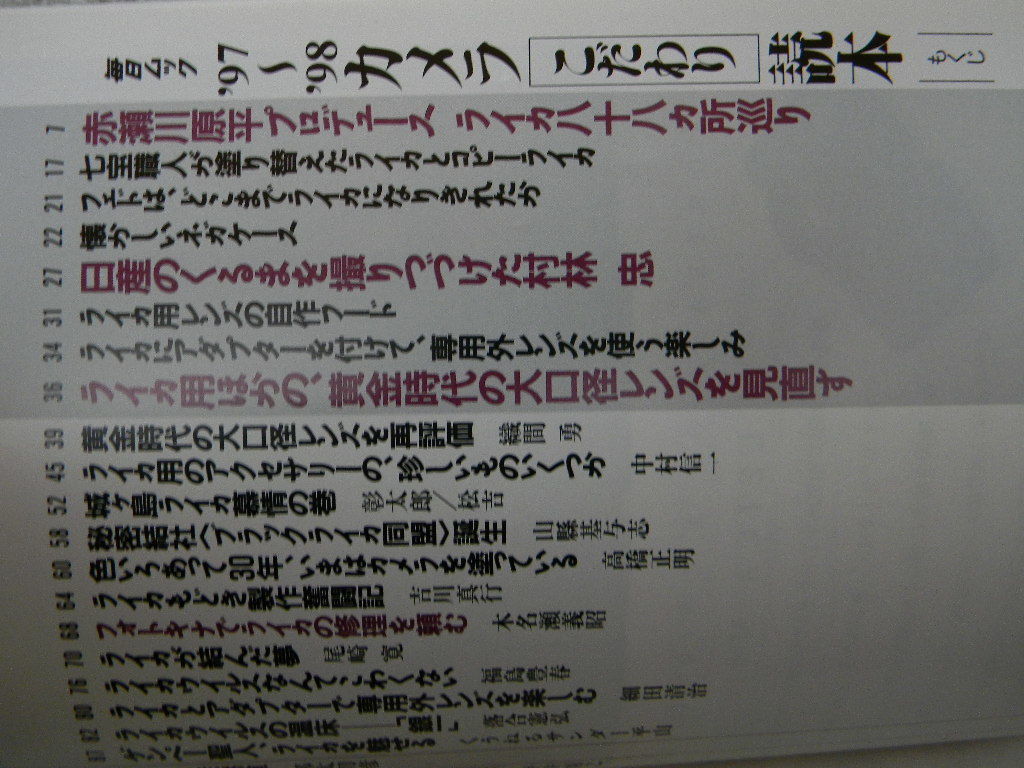 毎日ムック '97〜'98 カメラこだわり読本 もくじ
7 赤瀬川原平プロデュース ライカ八十八カ所巡り
17 七宝職人が塗り替えたライカとコピーライカ
21 フェドは、どこまでライカになりきれたか
22 懐かしいネガケース
27 日産のくるまを撮りつづけた村林 忠
31 ライカ用レンズの自作フード
34 ライカにアダプターを付けて、専用外レンズを使う楽しみ
36 ライカ用ほかの、黄金時代の大口径レンズを見直す
39 黄金時代の大口径レンズを再評価 織間 勇
45 ライカ用のアクセサリーの、珍しいものいくつか 中村信一
52 城ヶ島ライカ慕情の巻 彰太郎／松吉
58 秘密結社〈ブラックライカ同盟〉誕生 山縣基与志
60 色いろあって30年、いまはカメラを塗っている 高橋正明
64 ライカもどき製作奮闘記 吉川真行
68 フォトキナでライカの修理を頼む 木名瀬義昭
70 ライカが結んだ夢 尾崎 寛
76 ライカウイルスなんて、こわくない 福島豊春
80 ライカとアダプターで専用外レンズを楽しむ 細田清治
82 ライカウイルスの温床 落合憲弘
87 ゲンペー聖人、ライカを魅せる くうねるサンダー平山